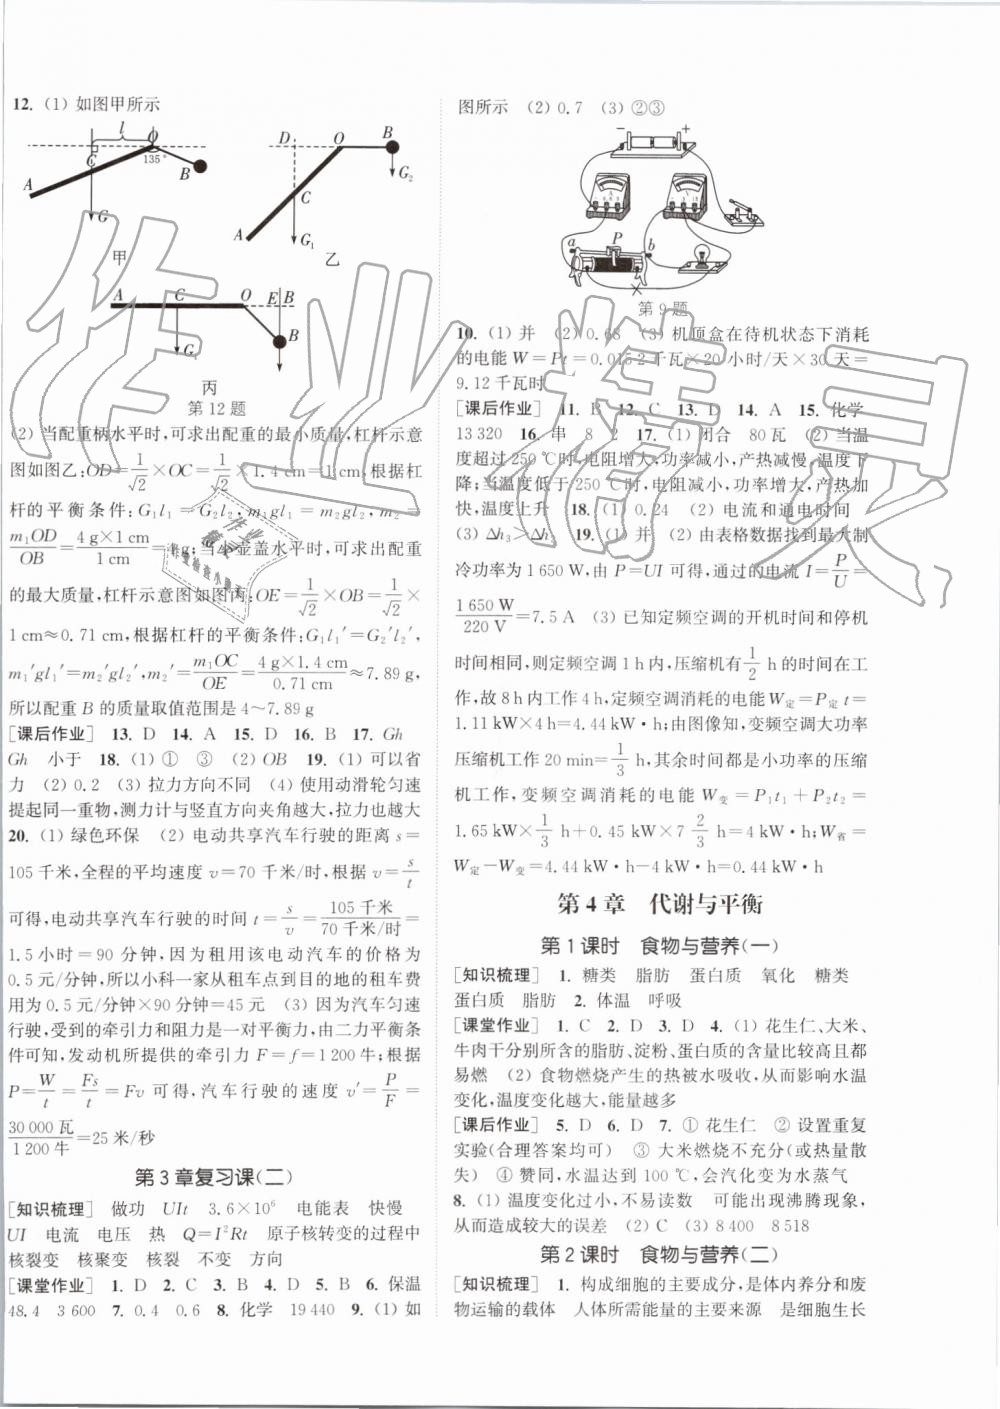 12. (1) 如图甲所示
l
O
C
135°
A
B
G
甲
D O B
G₂
C
A
G₁
乙
A C O E B
G
B
丙
第12题
(2) 当配重柄水平时,可求出配重的最小质量,杠杆示意
图如图乙:OD=1/√2×OC=1/√2×1.4 cm=1 cm,根据杠
杆的平衡条件:G₁l₁=G₂l₂,m₁gl₁=m₂gl₂,m₂=
m₁OD/OB=4 g×1 cm/1 cm=4 g;当小壶盖水平时,可求出配重
的最大质量,杠杆示意图如图丙:OE=1/√2×OB=1/√2×
1 cm≈0.71 cm,根据杠杆的平衡条件:G₁l₁′=G₂′l₂′,
m₁′gl₁′=m₂′gl₂′,m₂′=m₁OC/OE=4 g×1.4 cm/0.71 cm≈7.89 g,
所以配重 B 的质量取值范围是 4~7.89 g
[课后作业] 13. D 14. A 15. D 16. B 17. Gh
Gh 小于 18. (1) ① ③ (2) OB 19. (1) 可以省
力 (2) 0.2 (3) 拉力方向不同 (4) 使用动滑轮匀速
提起同一重物,测力计与竖直方向夹角越大,拉力也越大
20. (1) 绿色环保 (2) 电动共享汽车行驶的距离 s=
105 千米,全程的平均速度 v=70 千米/时,根据 v=s/t
可得,电动共享汽车行驶的时间 t=s/v=105 千米/70 千米/时=
1.5 小时=90 分钟,因为租用该电动汽车的价格为
0.5 元/分钟,所以小科一家从租车点到目的地的租车费
用为 0.5 元/分钟×90 分钟=45 元 (3) 因为汽车匀速
行驶,受到的牵引力和阻力是一对平衡力,由二力平衡条
件可知,发动机所提供的牵引力 F=f=1 200 牛;根据
P=W/t=Fs/t=Fv 可得,汽车行驶的速度 v′=P/F=
30 000 瓦/1 200 牛=25 米/秒
第 3 章复习课(二)
[知识梳理] 做功 UIt 3.6×10⁶ 电能表 快慢
UI 电流 电压 热 Q=I²Rt 原子核转变的过程中
核裂变 核聚变 核裂 不变 方向
[课堂作业] 1. D 2. C 3. B 4. D 5. B 6. 保温
48.4 3 600 7. 0.4 0.6 8. 化学 19 440 9. (1) 如
图所示 (2) 0.7 (3) ②③
− +
A V
a P b
第 9 题
10. (1) 并 (2) 0.68 (3) 机顶盒在待机状态下消耗
的电能 W=Pt=0.015 2 千瓦×20 小时/天×30 天=
9.12 千瓦时
[课后作业] 11. B 12. C 13. D 14. A 15. 化学
13 320 16. 串 8 2 17. (1) 闭合 80 瓦 (2) 当温
度超过 250 ℃时,电阻增大,功率减小,产热减慢,温度下
降;当温度低于 250 ℃时,电阻减小,功率增大,产热加
快,温度上升 18. (1) 0.24 (2) 电流和通电时间
(3) Δh₃>Δh₁ 19. (1) 并 (2) 由表格数据找到最大制
冷功率为 1 650 W,由 P=UI 可得,通过的电流 I=P/U=
1 650 W/220 V=7.5 A (3) 已知定频空调的开机时间和停机
时间相同,则定频空调 1 h 内,压缩机有 1/2 h 的时间在工
作,故 8 h 内工作 4 h,定频空调消耗的电能 W定=P定 t=
1.11 kW×4 h=4.44 kW·h;由图像知,变频空调大功率
压缩机工作 20 min=1/3 h,其余时间都是小功率的压缩
机工作,变频空调消耗的电能 W变=P₁t₁+P₂t₂=
1.65 kW×1/3 h+0.45 kW×7 2/3 h=4 kW·h;W省=
W定−W变=4.44 kW·h−4 kW·h=0.44 kW·h
第 4 章 代谢与平衡
第 1 课时 食物与营养(一)
[知识梳理] 1. 糖类 脂肪 蛋白质 氧化 糖类
蛋白质 脂肪 2. 体温 呼吸
[课堂作业] 1. C 2. D 3. D 4. (1) 花生仁、大米、
牛肉干分别所含的脂肪、淀粉、蛋白质的含量比较高且都
易燃 (2) 食物燃烧产生的热被水吸收,从而影响水温
变化,温度变化越大,能量越多
[课后作业] 5. D 6. D 7. ① 花生仁 ② 设置重复
实验(合理答案均可) ③ 大米燃烧不充分(或热量散
失) ④ 赞同,水温达到 100 ℃,会汽化变为水蒸气
8. (1) 温度变化过小,不易读数 可能出现沸腾现象,
从而造成较大的误差 (2) C (3) 8 400 8 518
第 2 课时 食物与营养(二)
[知识梳理] 1. 构成细胞的主要成分,是体内养分和废
物运输的载体 人体所需能量的主要来源 是细胞生长
作业精灵